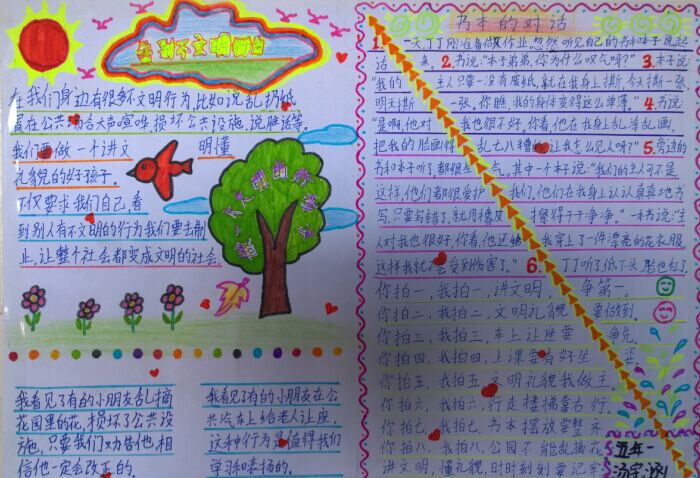 告别不文明
在我们身边有很多不文明行为,比如说乱扔纸
屑在公共场合大声喧哗,损坏公共设施,说脏话等。
我们要做一个讲文 明懂
礼貌的好孩子。
不仅要求我们自己,看
到别人有不文明的行为我们要去制
止,让整个社会都变成文明的社会。
做一个文明的
我看见了有的小朋友乱摘
花园里的花,损坏了公共设
施,只要我们劝告他,相
信他一定会改正的。
我看见了有的小朋友在公
共汽车上给老人让座,
这种行为是值得我们
学习和表扬的。
书本的对话
1. 一天,丁丁刚准备做作业,忽然听见自己的书和本子说起
话来。2.书说:“本子弟弟,你为什么叹气呀?”3.本子说:
“我的 主人只要一没有废纸,就在我身上撕,今天撕一张
明天撕 一张,你瞧,我的身体变得这么单薄。”4.书说:
“是啊,他对 我也很不好,你看,他在我身上乱涂乱画,
把我的脸画得 乱七八糟的,让我怎么见人呀?”5.旁边的
书和本子听了,都很生 气。其中一个本子说:“我们的主人可不是
这样,他们都很爱护 我们。他们在我身上认认真真地书
写,只要写错了,就用橡皮 擦得干干净净。”一本书说:“主
人对我也很好,你看,他还给 我穿上了一件漂亮的花衣服,
这样我就不会受到伤害了。”6. 丁丁听了,低下头,脸也红了
你拍一,我拍一,讲文明, 争第一。
你拍二,我拍二,文明礼貌 要做到。
你拍三,我拍三,车上让座要 争先。
你拍四,我拍四,上课要有好坐 姿。
你拍五,我拍五,文明礼貌我做主。
你拍六,我拍六,行走楼梯靠右行。
你拍七,我拍七,书本摆放要整齐
你拍八,我拍八,公园不能乱摘花
讲文明,懂礼貌,时时刻刻要记牢
五年一